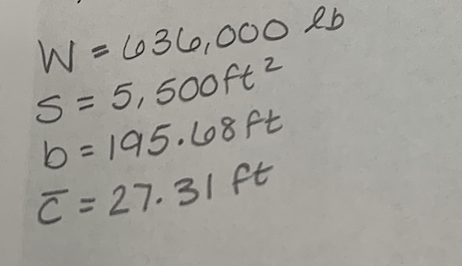 W = 636,000 lb
S = 5,500ft²
b = 195.68ft
c̅ = 27.31 ft